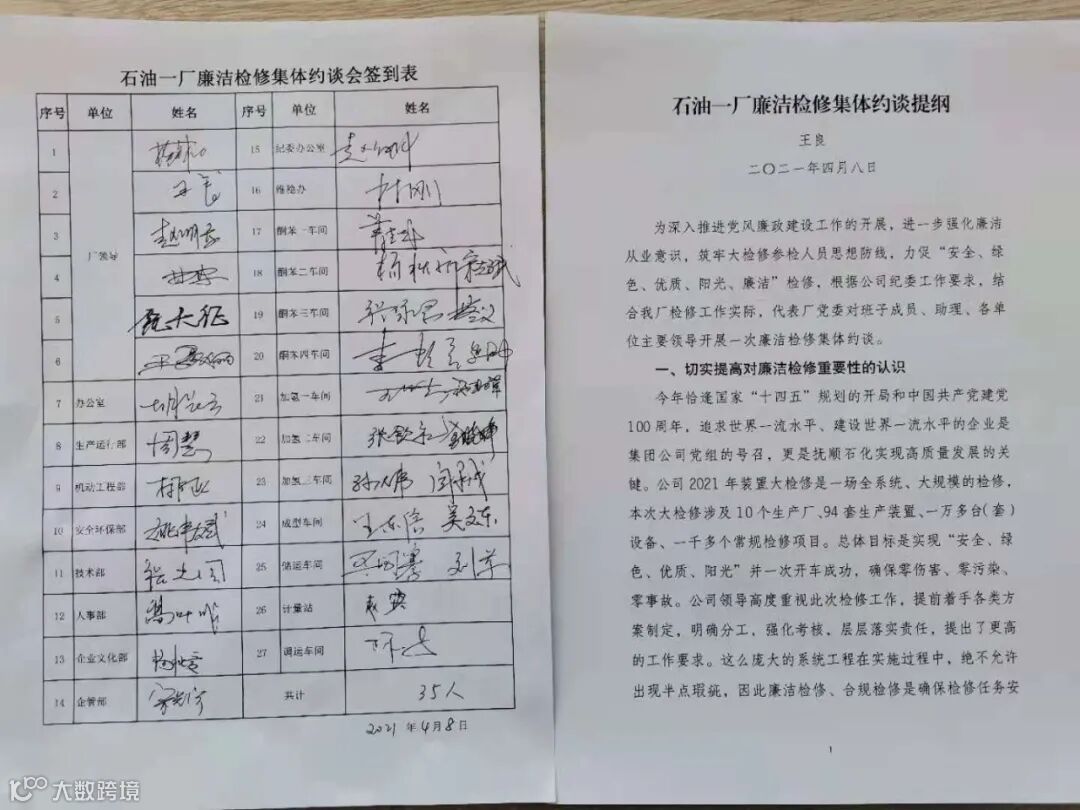 石油一厂廉洁检修集体约谈会签到表
序号 单位 姓名 序号 单位 姓名
1 厂领导 15 纪委办公室
2 16 维稳办
3 17 酮苯一车间
4 18 酮苯二车间
5 19 酮苯三车间
6 20 酮苯四车间
7 办公室 21 加氢一车间
8 生产运行部 周慧 22 加氢二车间
9 机动工程部 23 加氢三车间
10 安全环保部 24 成型车间 王东信 吴文东
11 技术部 25 储运车间
12 人事部 26 计量站
13 企业文化部 27 调运车间
14 企管部 共计 35人
2021年4月8日
石油一厂廉洁检修集体约谈提纲
王良
二〇二一年四月八日
为深入推进党风廉政建设工作的开展，进一步强化廉洁
从业意识，筑牢大检修参检人员思想防线，力促“安全、绿
色、优质、阳光、廉洁”检修，根据公司纪委工作要求，结
合我厂检修工作实际，代表厂党委对班子成员、助理、各单
位主要领导开展一次廉洁检修集体约谈。
一、切实提高对廉洁检修重要性的认识
今年恰逢国家“十四五”规划的开局和中国共产党建党
100周年，追求世界一流水平、建设世界一流水平的企业是
集团公司党组的号召，更是抚顺石化实现高质量发展的关
键。公司2021年装置大检修是一场全系统、大规模的检修，
本次大检修涉及10个生产厂、94套生产装置、一万多台（套）
设备、一千多个常规检修项目。总体目标是实现“安全、绿
色、优质、阳光”并一次开车成功，确保零伤害、零污染、
零事故。公司领导高度重视此次检修工作，提前着手各类方
案制定，明确分工，强化考核，层层落实责任，提出了更高
的工作要求。这么庞大的系统工程在实施过程中，绝不允许
出现半点瑕疵，因此廉洁检修、合规检修是确保检修任务安
1
大数跨境